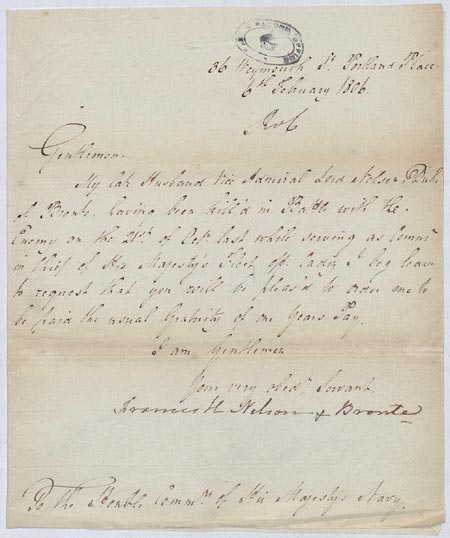 RECORD OFFICE
36 Weymouth St. Portland Place
6th February 1806.
Gentlemen.
My late Husband Vice Admiral Lord Nelson, Duke
of Bronte, having been kill'd in Battle with the
Enemy on the 21st of Octr last while serving as Commr
in Chief of His Majesty's Fleet off Cadiz I beg leave
to request that you will be pleas'd to order me to
be paid the usual Gratuity of one Years Pay.
I am Gentlemen
Your very obedt. Servant
Frances H Nelson & Bronte
To the Honble Commrs of His Majesty's Navy